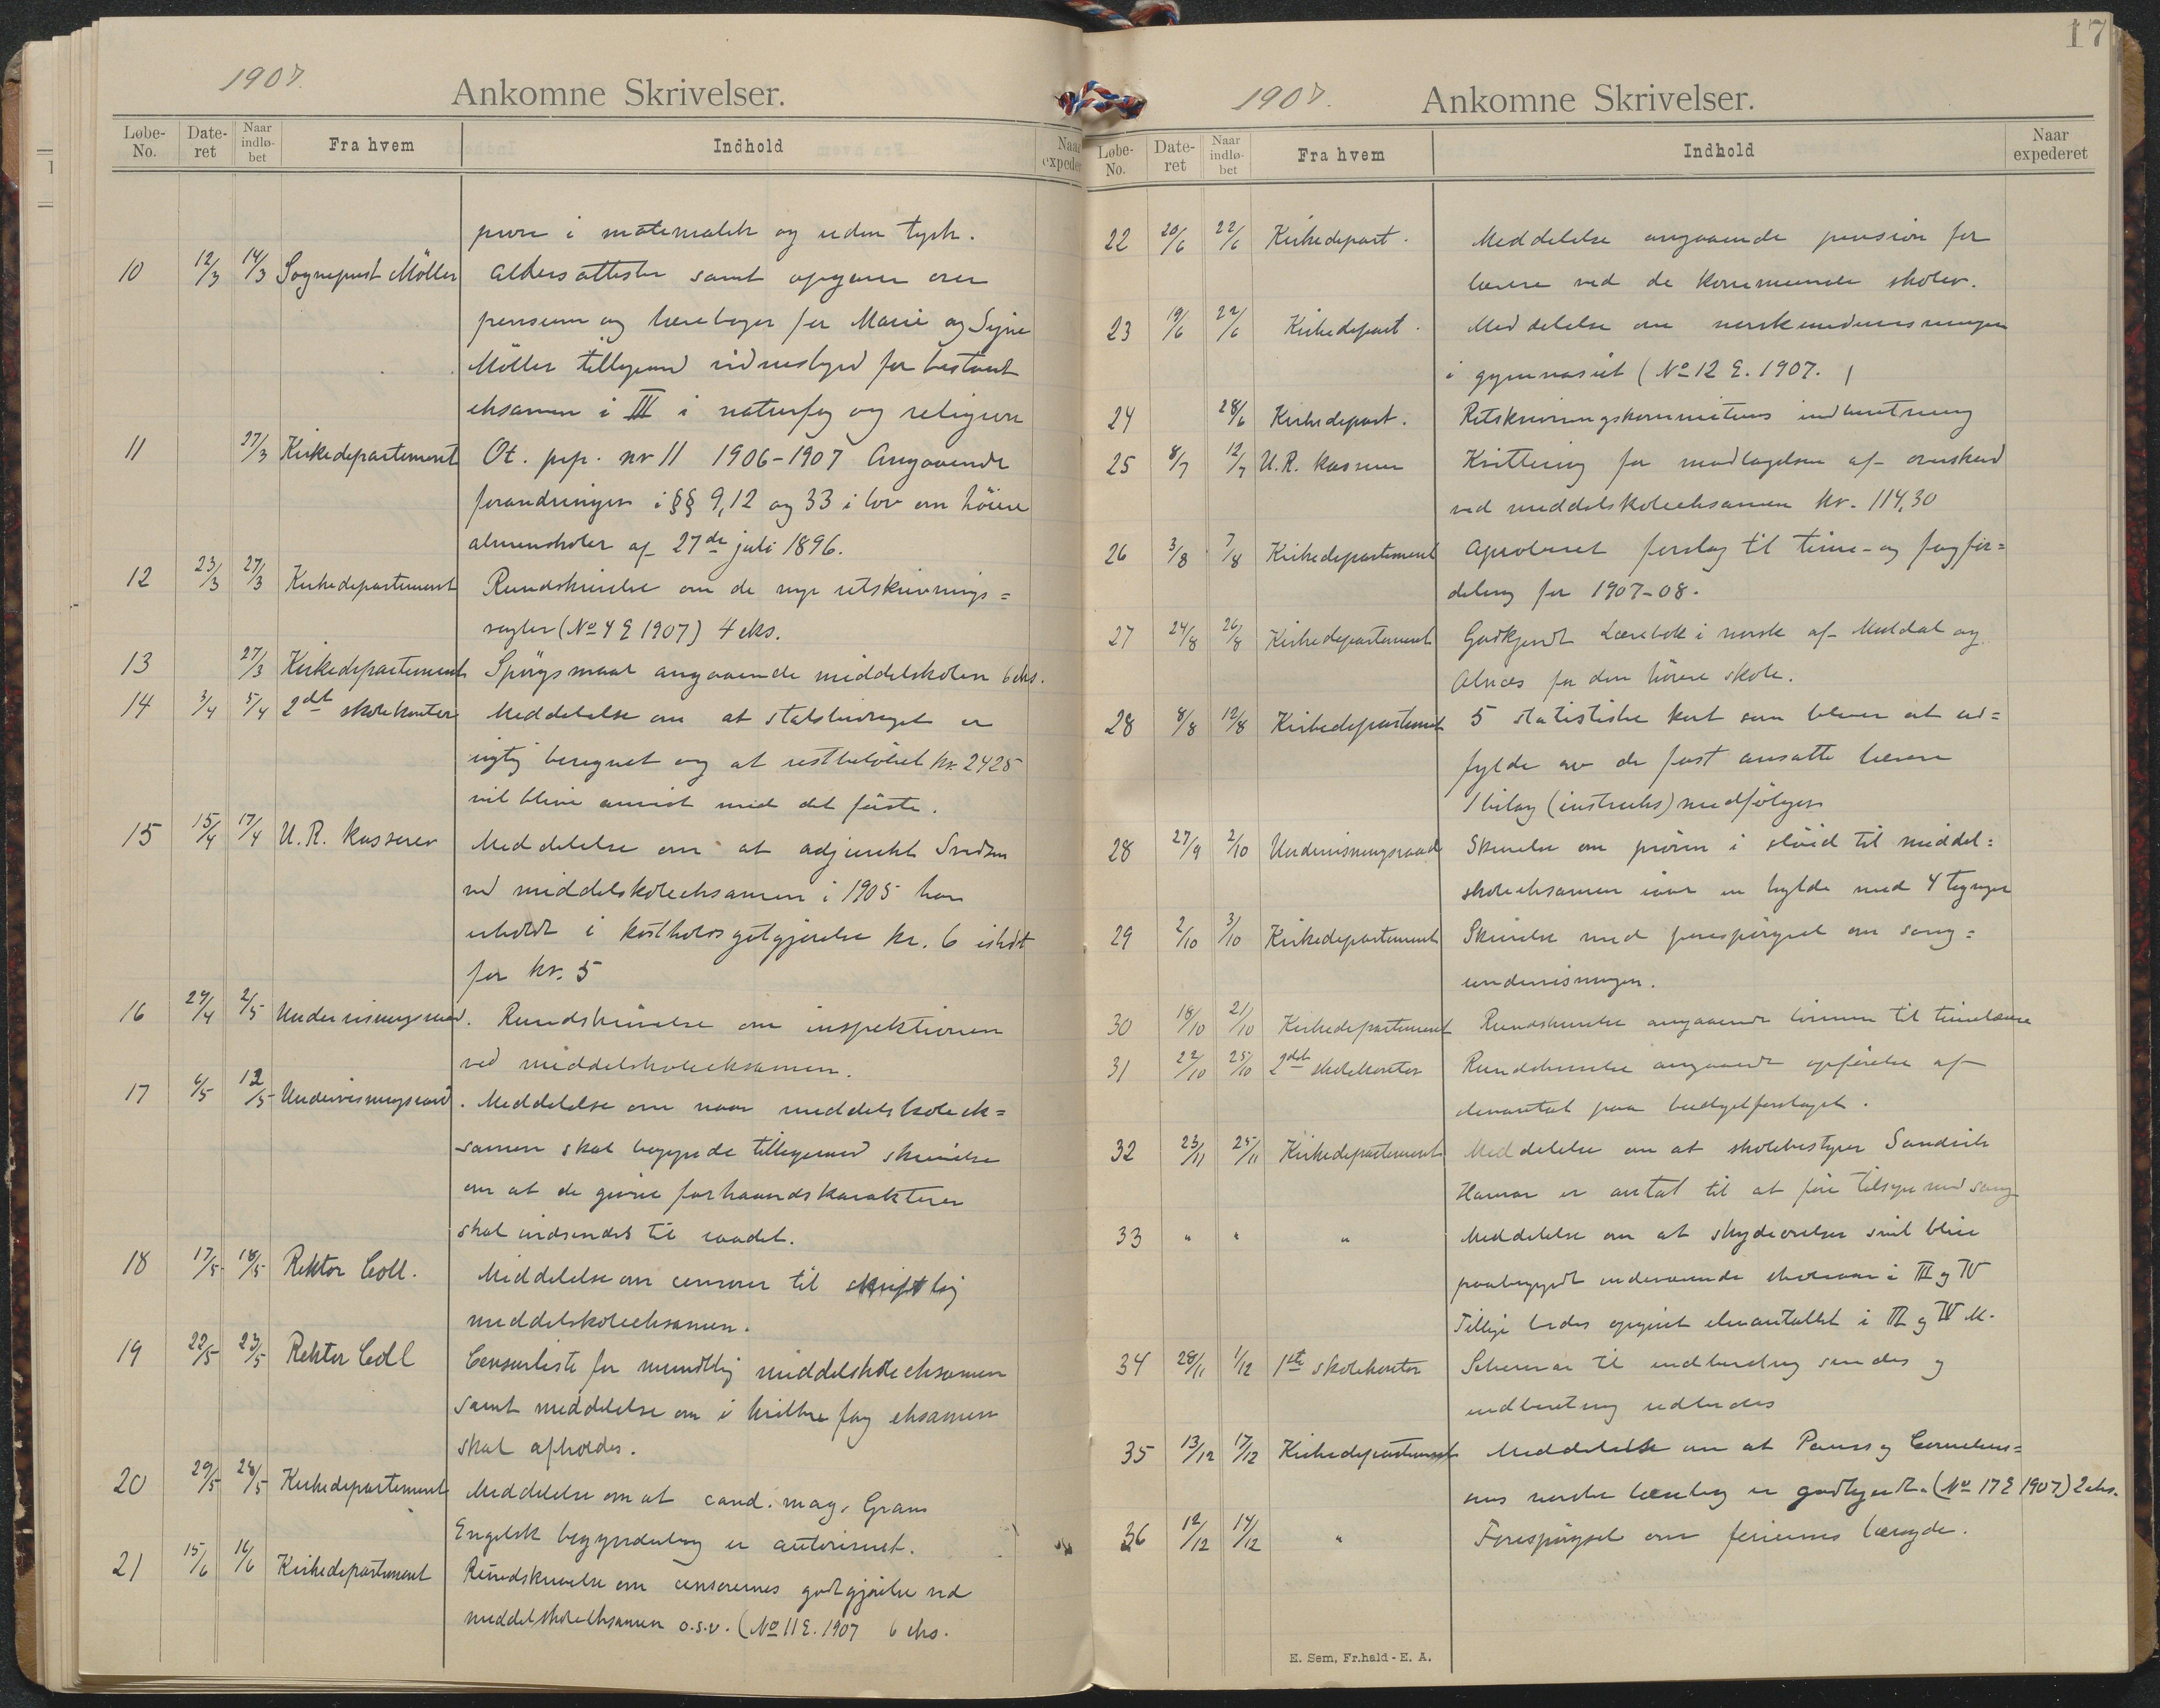 1907.
Ankomne Skrivelser.
Løbe-No. Dateret Naar indløbet Fra hvem Indhold Naar expeder
i matematik og uden tysk.
10 12/3 14/3 Sogneprest Möller Aldersattester samt opgave over
pensum og lærebøger for Marie og Signe
Möller tilligemed vidnesbyrd for bestaaet
eksamen i III i naturfag og religion
11 27/3 Kirkedepartement Ot. prp. nr 11 1906-1907 Angaaende
forandringer i §§ 9,12 og 33 i lov om höiere
almenskoler af 27de juli 1896.
12 23/3 27/3 Kirkedepartement Rundskrivelse om de nye retskrivnings=
regler (No 4 E 1907) 4 eks.
13 27/3 Kirkedepartement Spörgsmaal angaaende middelskolen 6 eks.
14 3/4 5/4 2det skolekontor Meddelelse om at statsbidraget er
rigtig beregnet og at restbelöbet kr. 2425
vil blive anvist med det förste.
15 15/4 17/4 U. R. kasserer Meddelelse om at adjunkt
ved middelskoleeksamen i 1905 har
erholdt i kostholdsgodtgjørelse kr. 6 istedet
for kr. 5
16 29/4 2/5 Undervisningsraad. Rundskrivelse om inspektionen
ved middelskoleeksamen.
17 6/5 12/5 Undervisningsraad. Meddelelse om naar middelskoleek=
samen skal begynde tilligemed skrivelse
om at de givne forhaandskarakterer
skal indsendes til raadet.
18 17/5 18/5 Rektor Coll. Meddelelse om censorer til skriftlig
middelskoleeksamen.
19 22/5 23/5 Rektor Coll Censorliste for mundtlig middelskoleeksamen
samt meddelelse om i hvilke fag eksamen
skal afholdes.
20 29/5 Kirkedepartement Meddelelse om at cand. mag. Grans
Engelsk begynderbog er autoriseret.
21 15/6 16/6 Kirkedepartement Rundskrivelse om censorernes godtgjörelse ved
middelskoleeksamen o.s.v. (No 11 E. 1907 6 eks.
17
1907.
Ankomne Skrivelser.
Løbe-No. Dateret Naar indløbet Fra hvem Indhold Naar expederet
22 20/6 22/6 Kirkedepart. Meddelelse angaaende pension for
lærere ved de kommunale skoler.
23 19/6 22/6 Kirkedepart. Meddelelse om norskundervisningen
i gymnasiet (No 12 E. 1907. )
24 28/6 Kirkedepart. Retskrivningskomiteens indberetning
25 8/7 12/7 U.R. kasserer Kvittering for modtagelsen af overskud
ved middelskoleeksamen kr. 114,30
26 3/8 7/8 Kirkedepartement Aproberet forslag til time- og fagfor=
deling for 1907-08.
27 24/8 26/8 Kirkedepartement Godkjendt Læsebok i norsk af og
Alnæs for den höiere skole.
28 8/8 12/8 Kirkedepartement 5 statistiske kort som bliver at ud=
fylde av de fast ansatte lærere
1 bilag (instruks) medfölger
28 27/9 2/10 Undervisningsraad Skrivelse om pröven i slöid til middel=
skoleeksamen iaar en hylde med 4
29 2/10 3/10 Kirkedepartement Skrivelse med forespörgsel om sang=
undervisningen.
30 18/10 21/10 Kirkedepartement Rundskrivelse angaaende lönnen til timelærere
31 22/10 25/10 2det skolekontor Rundskrivelse angaaende opförelse af
elevantal paa budgetforslaget.
32 23/11 25/11 Kirkedepartement Meddelelse om at skolebestyrer Sandvik
Hamar er antat til at före tilsyn med sang
33 " " " Meddelelse om at skydeövelser vil blive
paabegyndt indeværende skoleaar i III og IV
Tillige bedes opgivet elevantallet i III og IV M.
34 28/11 1/12 1ste skolekontor Schemaer til indberetning sendes og
indberetning udbedes
35 13/12 17/12 Kirkedepartement Meddelelse om at Pauss og Cornelius=
ens norske læsebog er godkjendt. (No 17 E 1907) 2 eks.
36 12/12 14/12 " Forespörgsel om feriernes længde.
E. Sem, Fr.hald - E. A.